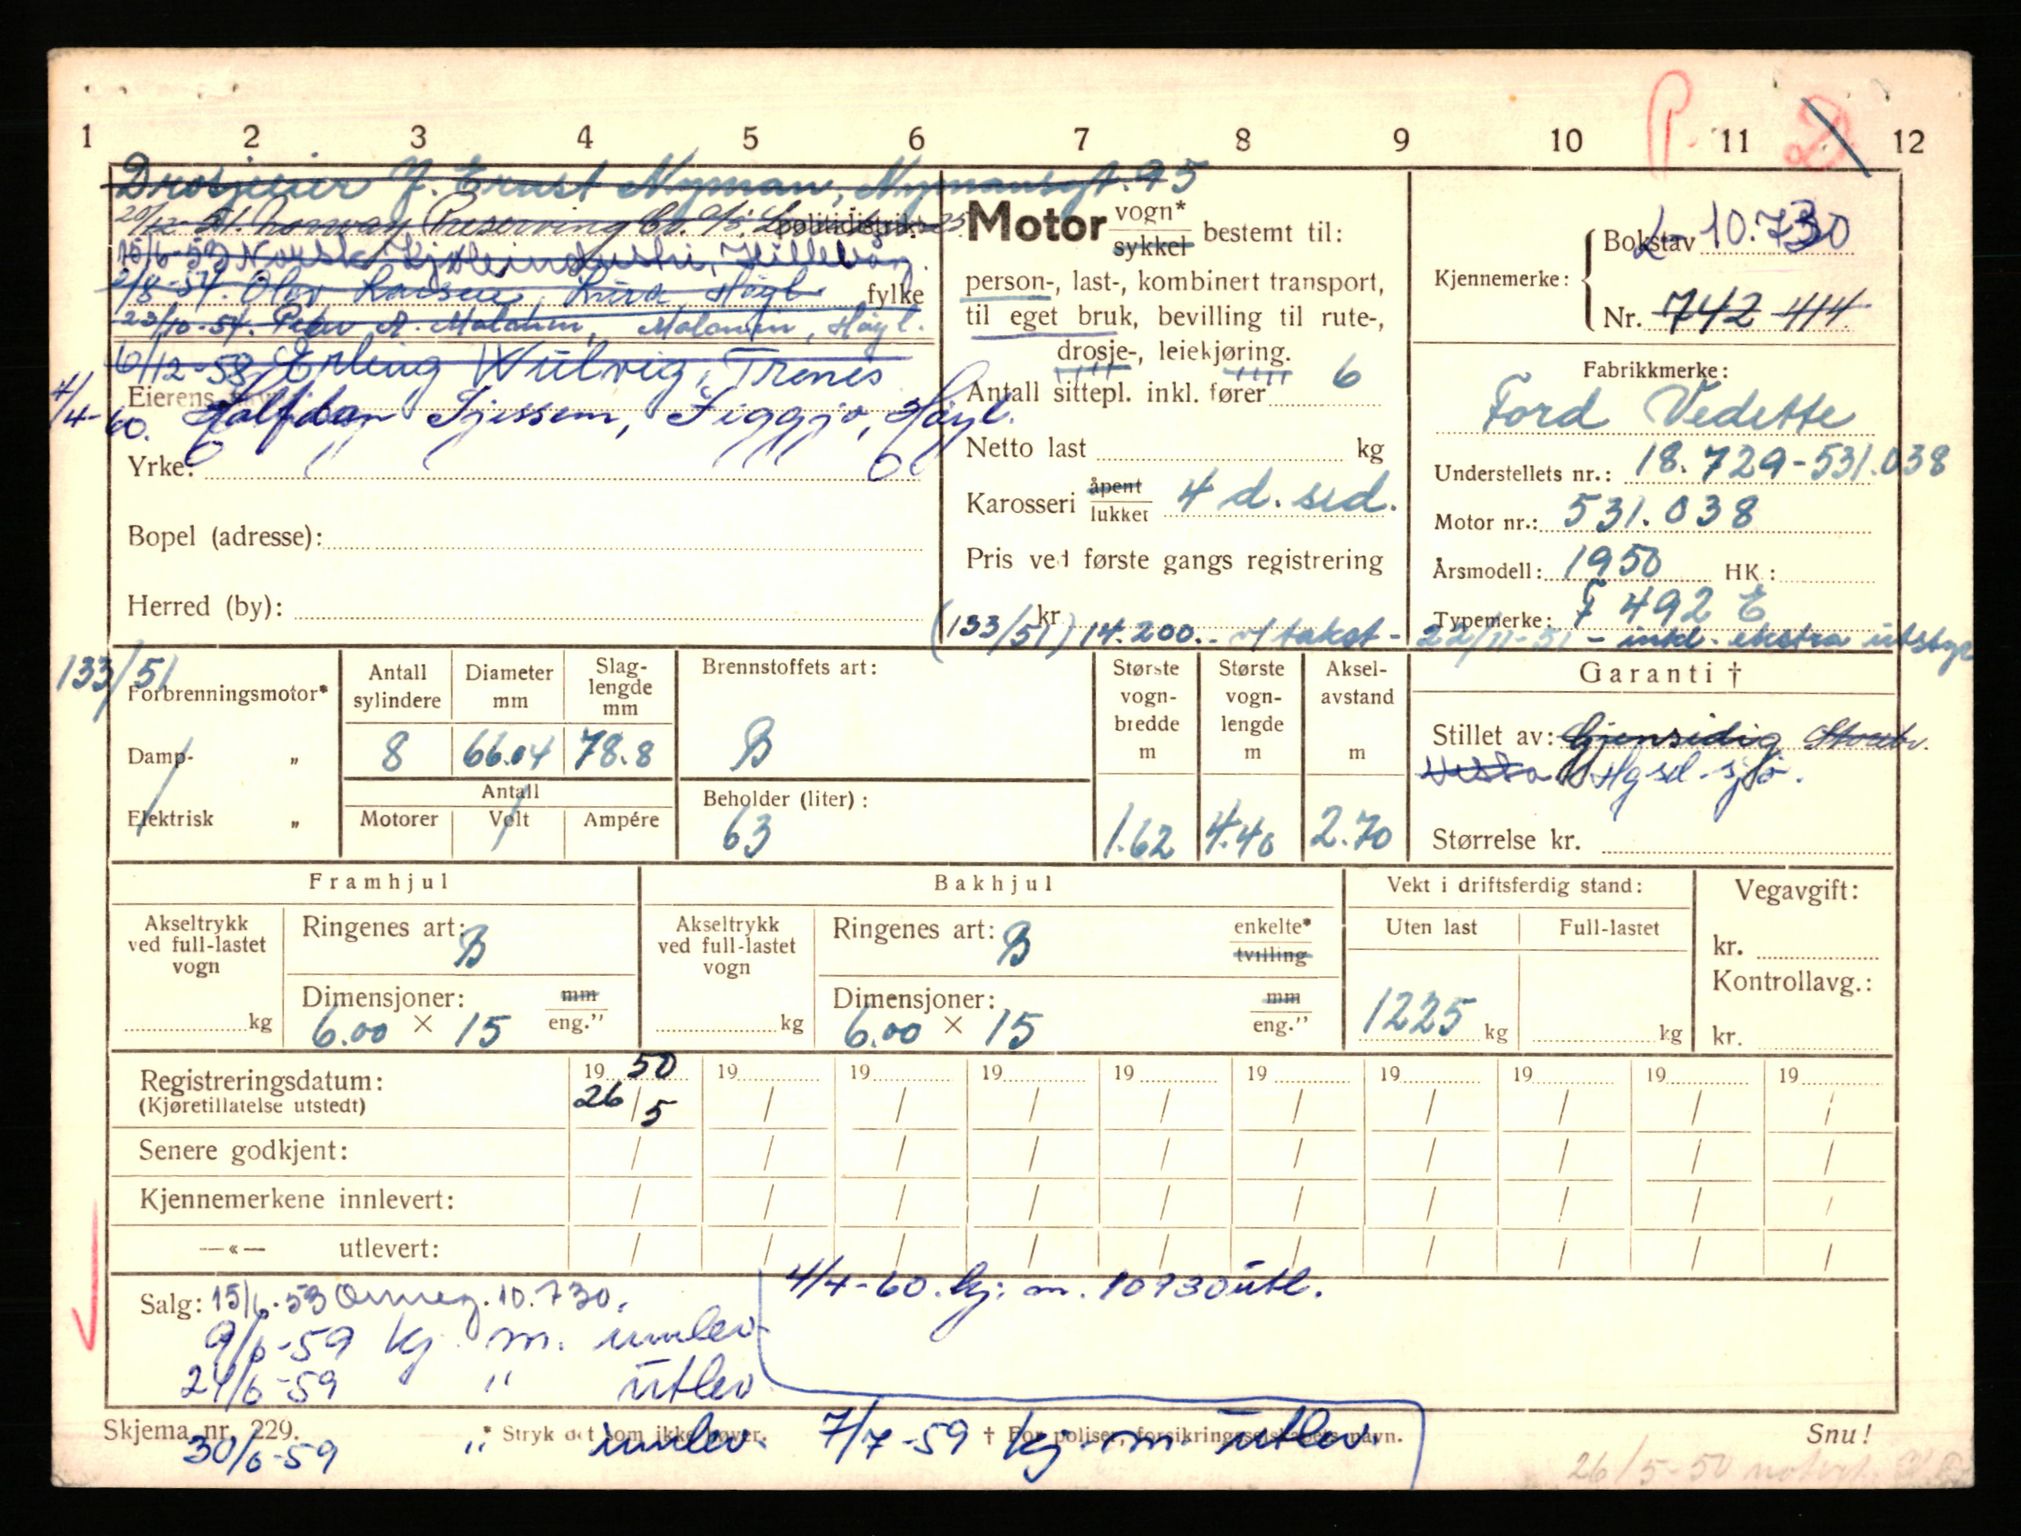 P. D
1 2 3 4 5 6 7 8 9 10 11 12
Drosjeeier J. Ernst Nyman, Nymansgt. 95
20/12-51. Norway Preserving Co. A/S. politidistrikt.
15/6-53 Norsk Kjoleindustri, Hillevåg.
2/8-54. Olav Larsen, Lura, Høyl. fylke
23/10-54. Peter A. Malmin, Malmin, Høyl.
6/12-58. Erling Wulvig, Trones
Eierens
4/4-60. Halfdan Tjessem, Figgjo, Høyl.
Yrke:
Bopel (adresse):
Herred (by):
Motor vogn* sykkel bestemt til:
person-, last-, kombinert transport,
til eget bruk, bevilling til rute-,
drosje-, leiekjøring.
Antall sittepl. inkl. fører 6
Netto last kg
Karosseri åpent lukket 4 d. sed.
Pris ved første gangs registrering
kr
(133/51) 14.200.- v/ takst - 22/11-51 - inkl. ekstra utstyr
Kjennemerke: Bokstav L- 10.730
Nr. 742 414
Fabrikkmerke:
Ford Vedette
Understellets nr.: 18.729-531.038
Motor nr.: 531.038
Årsmodell: 1950 HK:
Typemerke: F 492 E
133/51
Forbrenningsmotor*
Damp- „
Elektrisk „
Antall sylindere 8
Diameter mm 66.04
Slag-lengde mm 78.8
Antall
Motorer Volt Ampére
Brennstoffets art:
B
Beholder (liter):
63
Største vogn-bredde m 1.62
Største vogn-lengde m 4.40
Aksel-avstand m 2.70
Garanti †
Stillet av: Gjensidig Storbr.
Vesta Hgsd-sjø.
Størrelse kr.
Framhjul
Akseltrykk ved full-lastet vogn
kg
Ringenes art: B
Dimensjoner: mm
6.00 × 15 eng."
Bakhjul
Akseltrykk ved full-lastet vogn
kg
Ringenes art: B enkelte* tvilling
Dimensjoner: mm
6.00 × 15 eng."
Vekt i driftsferdig stand:
Uten last Full-lastet
1225 kg kg
Vegavgift:
kr.
Kontrollavg.:
kr.
Registreringsdatum: 19 50 19 19 19 19 19 19 19 19 19
(Kjøretillatelse utstedt) 26/5 / / / / / / / / /
Senere godkjent: / / / / / / / / / /
Kjennemerkene innlevert: / / / / / / / / / /
—«— utlevert: / / / / / / / / / /
Salg: 15/6-53 Omreg. 10.730.
4/4-60. kj: m. 10730 utl.
9/6-59 kj. m. innlev
24/6-59 " utlev
Skjema nr. 229. * Stryk det som ikke høver. † For poliser, forsikringsselskapets navn. Snu!
30/6-59 " innlev. 7/7-59 kj. m. utlev.
26/5-50 notert.